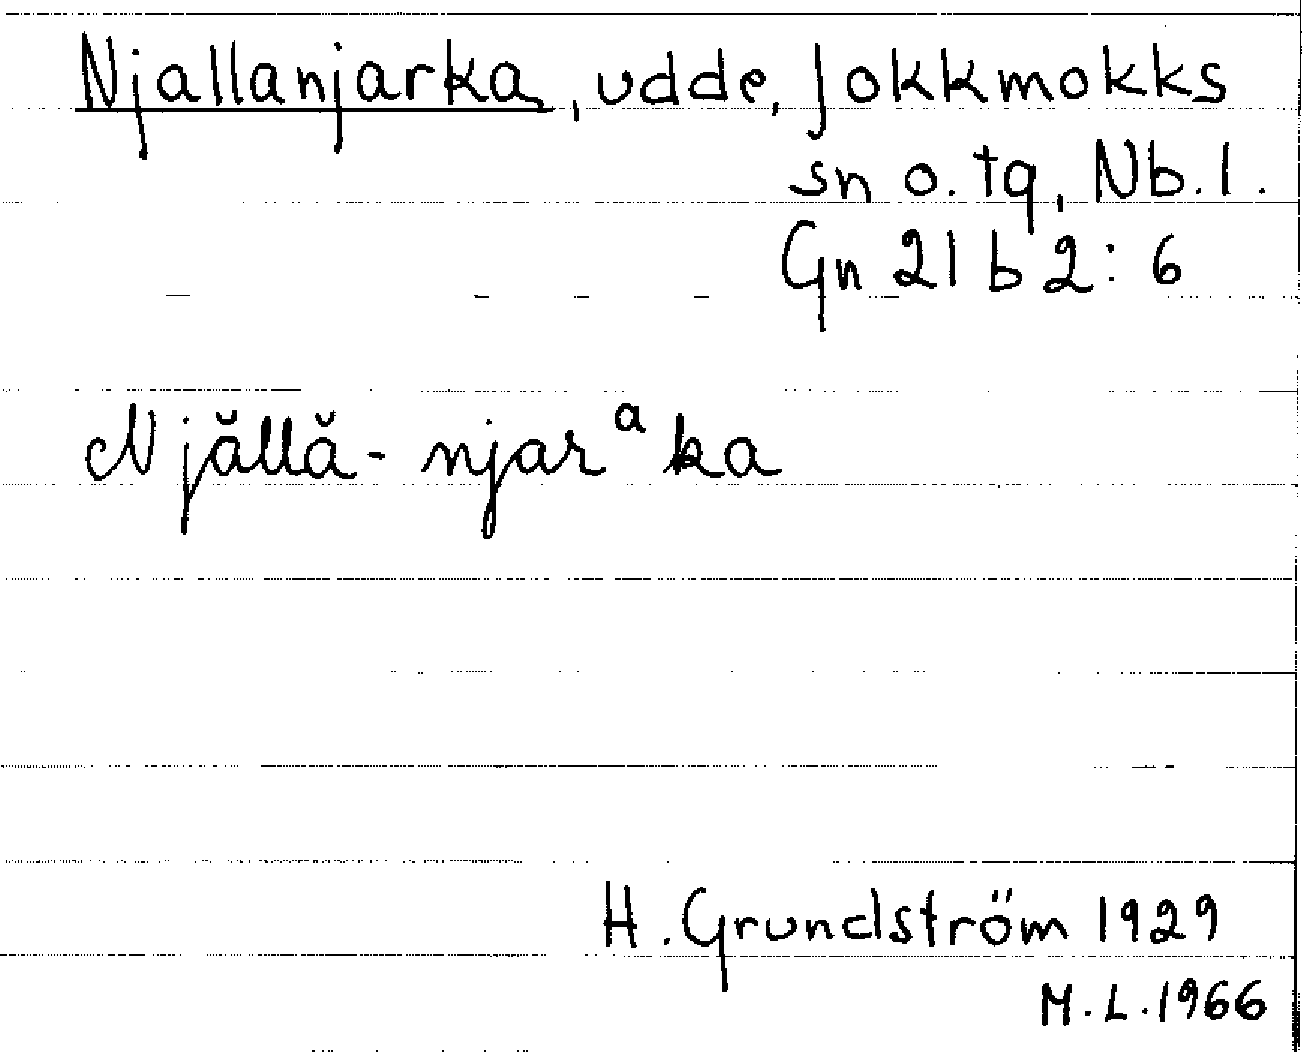 Njallanjarka, udde, Jokkmokks
sn o. tg, Nb. l.
Gn 21 b 2: 6
Njăllă-njarᵃka
H. Grundström 1929
M. L. 1966